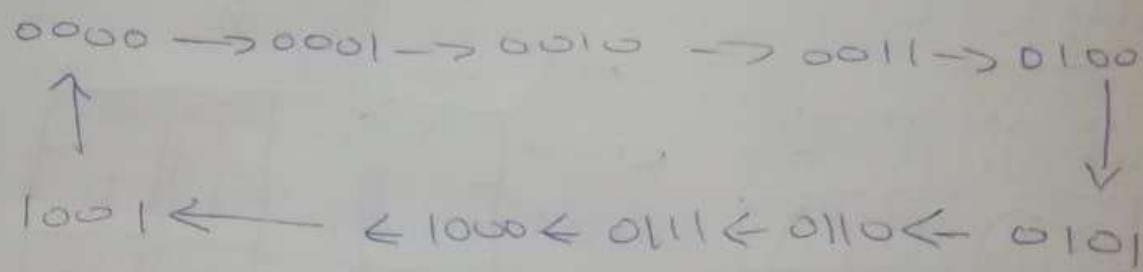 0000 → 0001 → 0010 → 0011 → 0100
1001 ← ← 1000 ← 0111 ← 0110 ← 0101